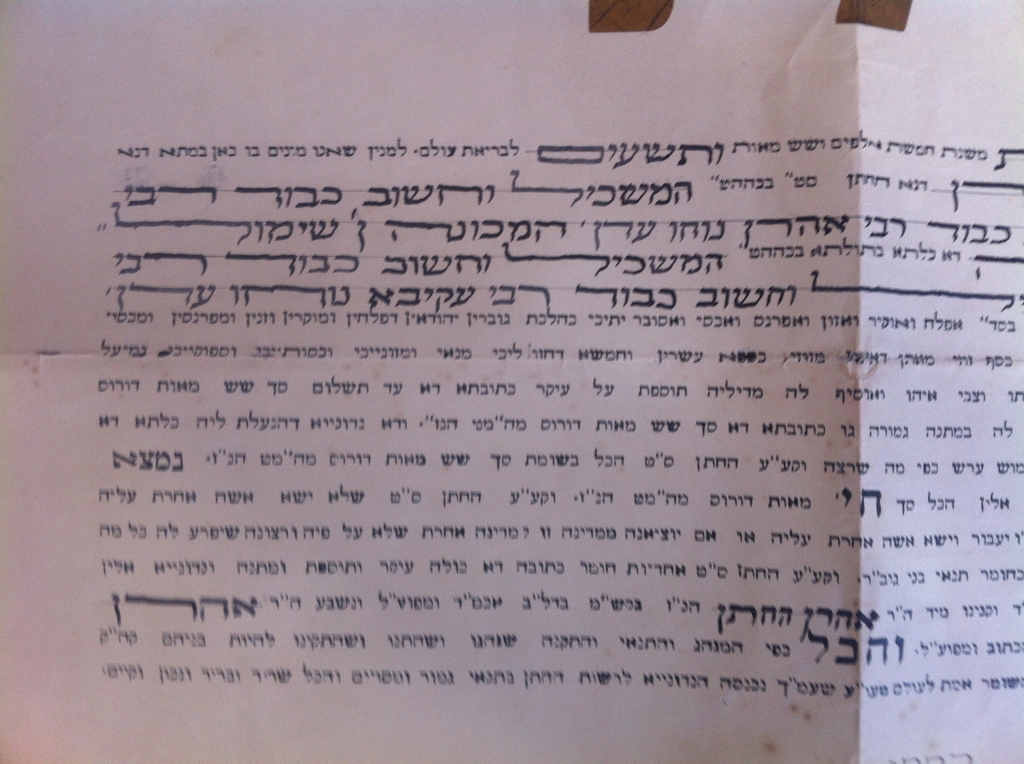 משנת חמשת אלפים ושש מאות ותשעים לבריאת עולם. למנין שאנו מונים בו כאן במתא דנא
דנא החתן סט" בכההט" המשכיל וחשוב כבוד רבי
כבוד רבי אהרן נוחו עדן, המכונה ן' שימול"
דא כלתא בתולתא בכההט" המשכיל וחשוב כבוד רבי
וחשוב כבוד רבי עקיבא נוחו עדן,
בסד" אפלח ואוקיר ואזון ואפרנס ואכסי ואסובר יתיכי כהלכת גוברין יהודאין דפלחין ומוקרין וזנין ומפרנסין ומכסי
כסף זוזי מאתן דאינון מזוזי כספא עשרין וחמשא דחזו ליכי מנאי ומזונייכי וכסותייכי וסיפוקייכי ומיעל
וצבי איהו ואוסיף לה מדיליה תוספת על עיקר כתובתא דא עד תשלום סך שש מאות דורוס
לה במתנה גמורה גו כתובתא דא סך שש מאות דורוס מה"מט הנז". ודא נדונייא דהנעלת ליה כלתא דא
ערש כפי מה שרצה וקע"ע החתן ס"ט הכל בשומת סך שש מאות דורוס מה"מט הנ"ז. נמצא
אלין הכל סך הי' מאות דורוס מה"מט הנ"ז. וקע"ע החתן ס"ט שלא ישא אשה אחרת עליה
יעבור וישא אשה אחרת עליה או אם יוציאנה ממדינה זו למדינה אחרת שלא על פיה ורצונה שיפרע לה כל מה
כחומר תנאי בני גוב"ר. וקע"ע החתן ס"ט אחריות חומר כתובה דא כולה עיקר ותוספת ומתנה ונדונייא אלין
וקנינו מיד ה"ר אהרן החתן הנ"ז בקש"מ בדל"ב אכמ"ד ומפוע"ל ונשבע ה"ר אהרן
ככתוב ומפוע"ל. והכל כפי המנהג והתנאי והתקנה שנהגו ושהתנו ושהתקינו להיות בניהם קה"ק
אמת לעולם שעמ"ך נכנסה הנדונייא לרשות החתן בתנאי גמור ומסויים והכל שריר ובריר ונכון וקיים.